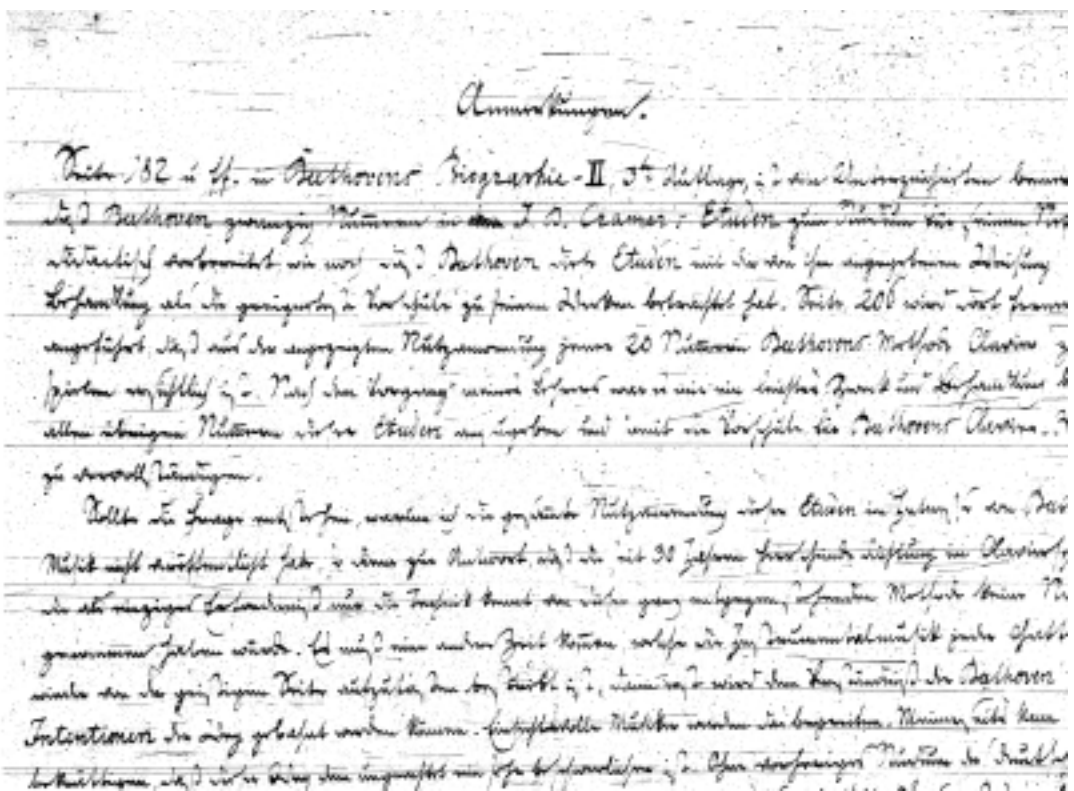 Anmerkungen.
Seite 182 u ff. in Beethovens Biographie - II, 3te Auflage, ist vom Unterzeichneten
daß Beethoven zwanzig Nummern in den J. B. Cramer's Etuden zum Studium für seinen
didactisch vorbereitet, wie noch daß Beethoven diese Etuden mit der von ihm angegebenen
Behandlung als die geeignetste Vorschule zu seinen Werken betrachtet hat. Seite 206 wird dort
angeführt, daß aus der angezeigten Nutzanwendung jener 20 Nummern Beethovens Methode Clavier
spielen ersichtlich ist. Nach dem Vorgang meines Lehrers war es mir ein leichtes Zweck und Behandlung
allen übrigen Nummern dieser Etuden anzugeben und somit die Vorschule für Beethovens Clavier
zu vervollständigen.
Sollte die Frage entstehen, warum ich die gesamte Nutzanwendung dieser Etuden im Interesse von
Musik nicht veröffentlicht habe, so diene zur Antwort, daß die seit 30 Jahren herrschende Richtung im
die als einziges Erforderniß nur die Technik kennt von dieser ganz entgegenstehenden Methode keine
genommen haben würde. Es muß eine andere Zeit kommen, welche die Instrumentalmusik jeder
wieder von der geistigen Seite aufzufassen bestrebt ist, dann erst wird dem Verständniß der Beethoven
Intentionen der Weg gebahnt werden können. Einsichtsvolle Musiker werden das begreifen.
daß dieser Weg dem ungeachtet ein sehr beschwerlicher ist. Ohne vorheriges Studium